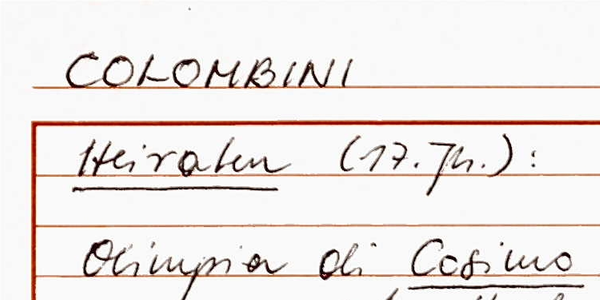 COLOMBINI
Heiraten (17. Jh.):
Olimpia di Cosimo